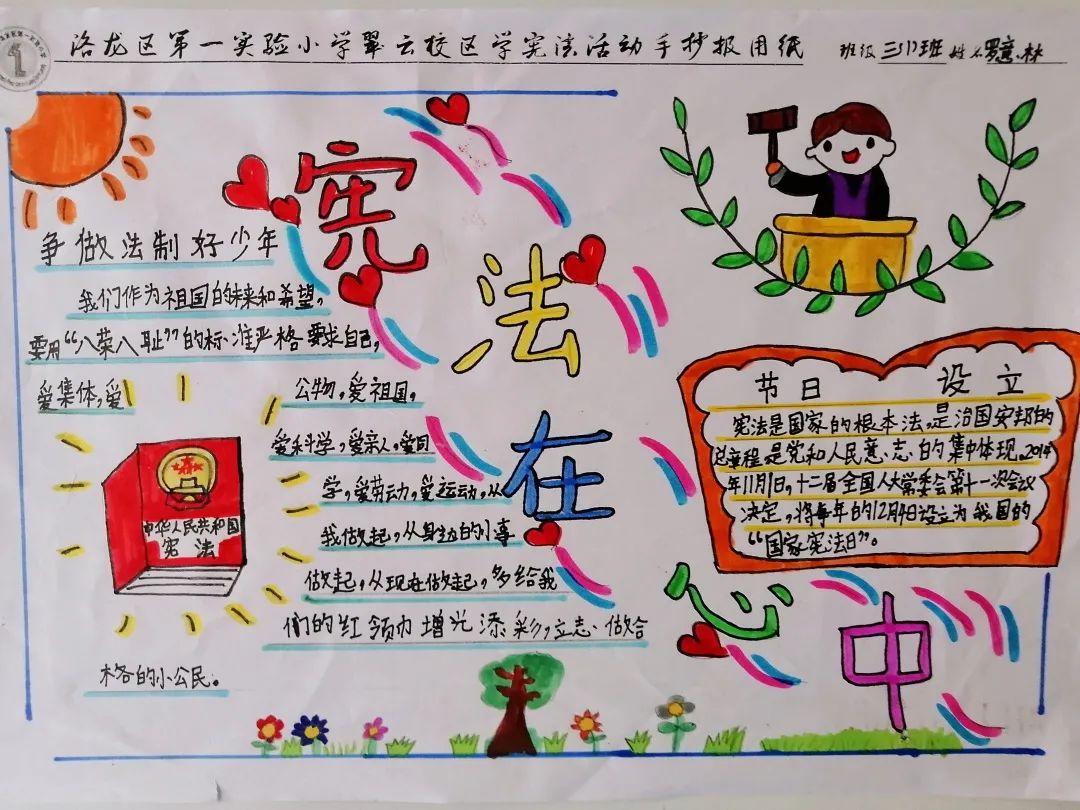 洛龙区第一实验小学翠云校区学宪法活动手抄报用纸
班级 三(1)班 姓名 罗意林
宪法在心中
争做法制好少年
我们作为祖国的未来和希望，
要用“八荣八耻”的标准严格要求自己，
爱集体，爱公物，爱祖国，
爱科学，爱亲人，爱同
学，爱劳动，爱运动，从
我做起，从身边的小事
做起，从现在做起，多给我
们的红领巾增光添彩，立志做合
格的小公民。
中华人民共和国
宪法
节日 设立
宪法是国家的根本法，是治国安邦的
总章程是党和人民意志的集中体现。2014
年11月1日，十二届全国人大常委会第十一次会议
决定，将每年的12月4日设立为我国的
“国家宪法日”。